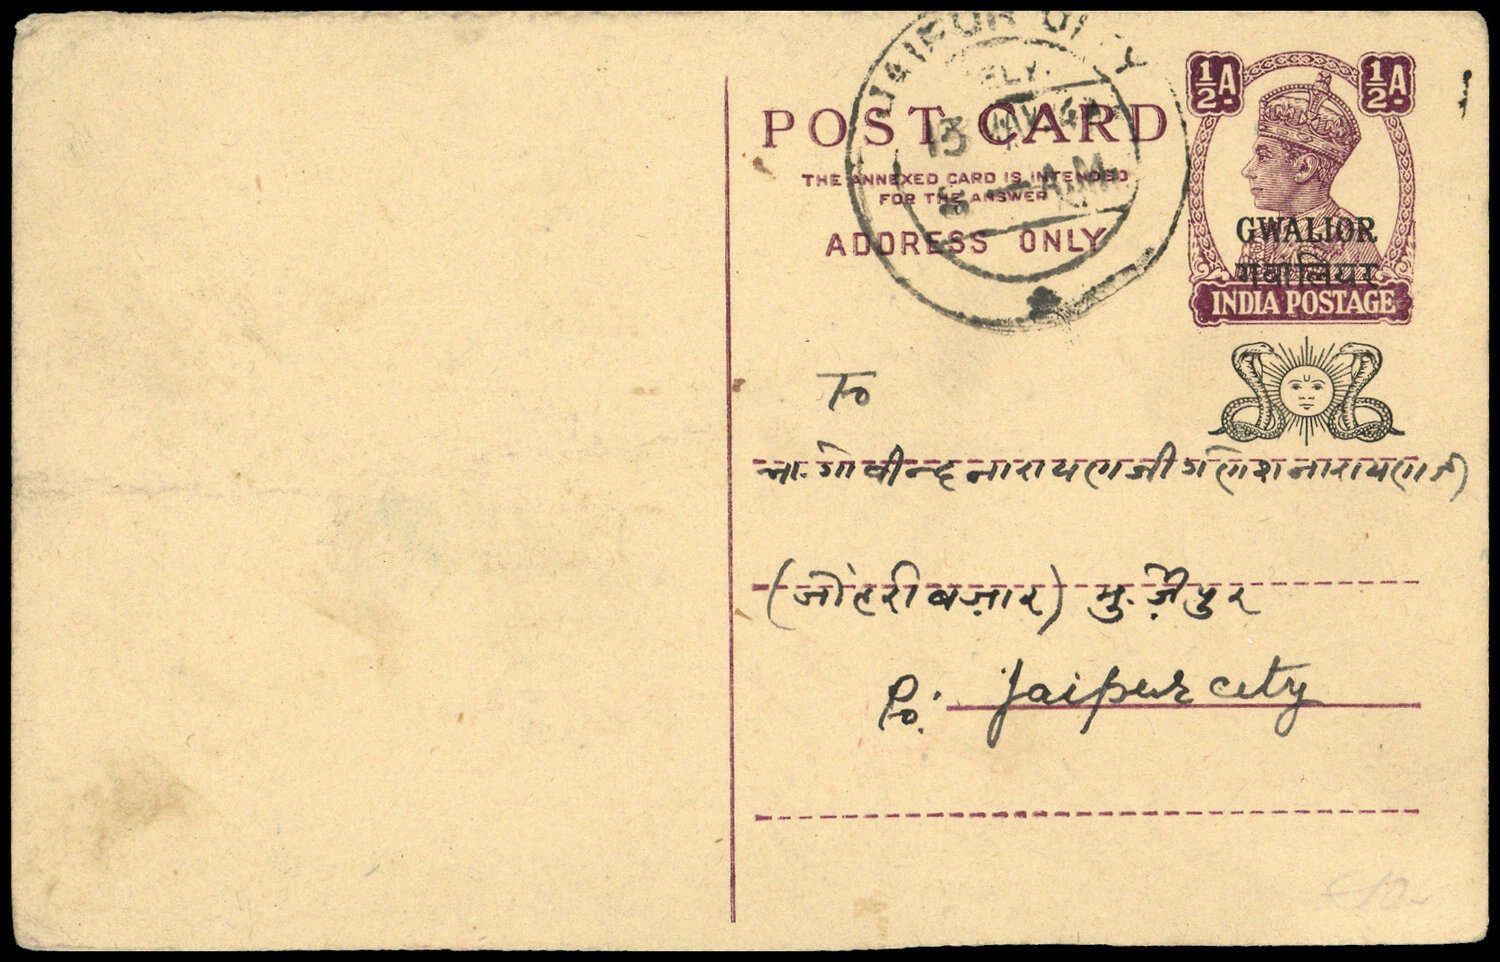 JAIPUR CITY
DELY.
13
8 — A.M.
POST CARD
THE ANNEXED CARD IS INTENDED
FOR THE ANSWER
ADDRESS ONLY
½A. ½A.
GWALIOR
गवालियर
INDIA POSTAGE
To
गोवीन्द नारायण जी गणेश नारायण जी
(जोंहरी बज़ार) मु. ज़ैपुर
Po: Jaipur city